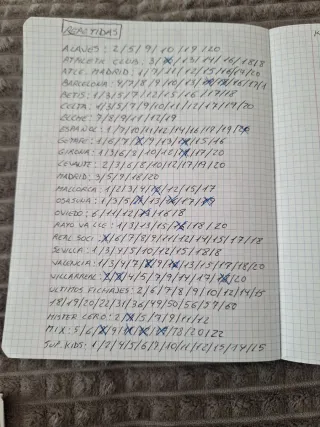 REPETIDAS
ALAVÉS: 2/5/9/10/19/20
ATHLETIC CLUB: 3/13/14/16/18/8
ATLE. MADRID: 1/7/11/12/15/16/19/20
BARCELONA: 4/7/8/9/10/15/
BETIS: 1/3/5/7/12/15/16/17/18
CELTA: 4/3/5/7/9/10/11/12/17/19/20
ELCHE: 7/8/9/11/12/19
ESPAÑOL: 1/7/10/11/12/14/16/17/19/20
GETAFE: 1/6/7/9/13/15/16
GIRONA: 1/3/6/8/10/12/17/20
LEVANTE: 2/3/6/8/10/12/17/19/20
MADRID: 3/5/9/18/20
MALLORCA: 1/2/3/4/12/15/17
OSASUNA: 1/3/5/13/17
OVIEDO: 6/11/12/16/8
RAYO VALLE: 1/3/13/15/18/20
REAL SOCI: 6/7/8/9/11/12/14/15/17/18
SEVILLA: 1/3/4/5/10/12/15/18/8
VALENCIA: 1/3/4/7/9/13/15/17/18/20
VILLARREAL: 4/5/7/9/14/17/20
ULTIMOS FICHAJES: 2/6/7/8/9/10/12/14/15
18/19/20/22/31/36/49/50/56/57/60
MISTER CERO: 2/5/7/9/11/12
MIX: 5/6/9/78/20/22
SUP. KIDS: 1/2/4/5/6/7/10/11/12/13/14/15